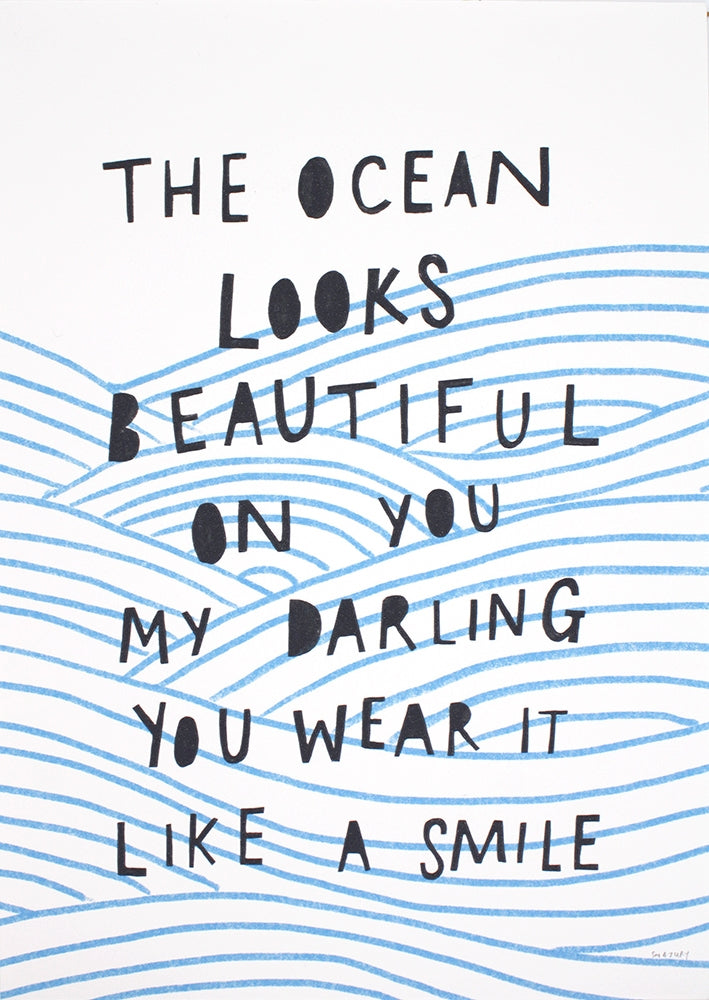 THE OCEAN
LOOKS
BEAUTIFUL
ON YOU
MY DARLING
YOU WEAR IT
LIKE A SMILE